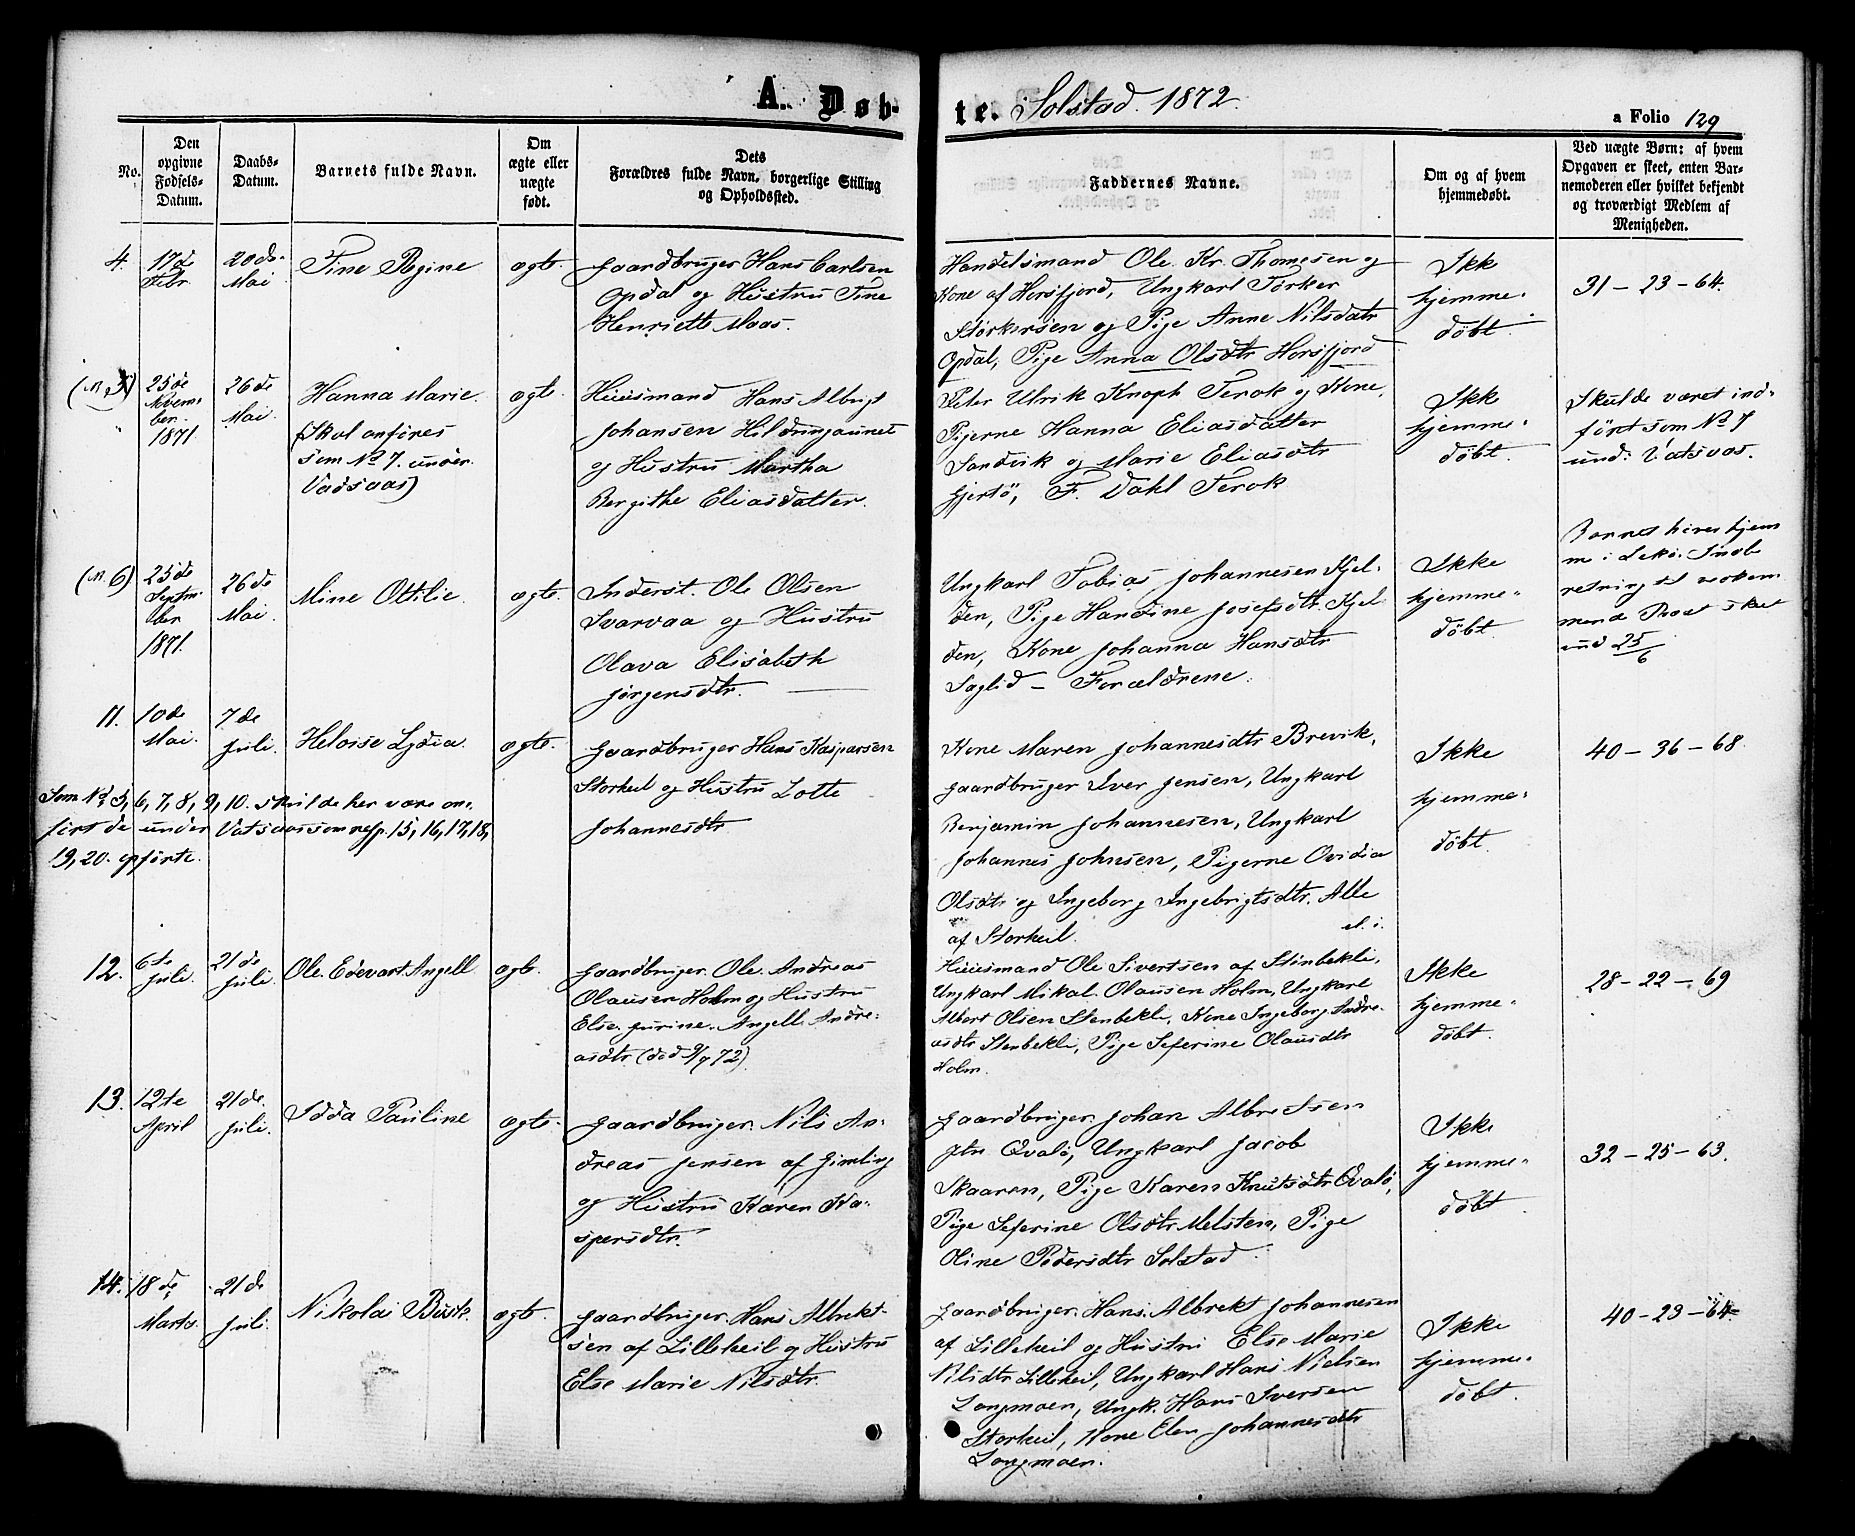 A. Døb-
te. Solstad 1872.
a Folio 129
No.
Den opgivne Fødsels-Datum.
Daabs-Datum.
Barnets fulde Navn.
Om ægte eller uægte født.
Dets Forældres fulde Navn, borgerlige Stilling og Opholdssted.
Faddernes Navne.
Om og af hvem hjemmedøbt.
Ved uægte Børn: af hvem Opgaven er skeet, enten Barnemoderen eller hvilket bekjendt og troværdigt Medlem af Menigheden.
4.
17de
Febr
20de
Mai
Tine Regine
ægte
Gaardbruger Hans Carlsen
Opdal og Hustru Tine
Henriette Moos.
Handelsmand Ole Kr. Thomesen og
Kone af Horsfjord, Ungkarl Torker
Storkersen og Pige Anne Nilsdatr
Opdal, Pige Anna Olsdtr Horsfjord
Ikk
hjemme-
døbt.
31 - 23 - 64.
(N. 5)
25de
Novem-
ber
1871.
26de
Mai.
Hanna Marie.
(Skal anføres
som No 7. under
Vadsaas)
ægte.
Huusmand Hans Albrigt
Johansen Hildringaunet
og Hustru Martha
Bergithe Eliasdatter.
Peter Ulrik Knoph Terok og Kone,
Pigerne Hanna Eliasdatter
Sandvik og Marie Eliasdtr
Gjertö, F. Dahl Terok
Ikk
hjemme-
døbt.
Skulde været ind-
ført som No 7
und: Vatsaas.
(N. 6)
25de
Septm-
ber
1871.
26de
Mai.
Mine Ottilie.
ægte.
Inderst. Ole Olsen
Svarvaa og Hustru
Olava Elisabeth
Jørgensdtr.
Ungkarl Tobias Johannesen Kjel-
den, Pige Handine Josefsdtr Kjel-
den, Kone Johanna Hansdtr
Saglid - Forældrene.
Ikke
hjemme-
døbt.
Barnet hører hjem
me i Lekö. Indbe
retning til vedkom
mende Præst skeet
und 25/6
11.
10de
Mai.
7de
Juli.
Heloise Lydia.
ægte.
Gaardbruger Hans Kaspersen
Storkeil og Hustru Lotte
Johannesdtr.
Kone Maren Johannesdtr Brevik,
Gaardbruger Iver Jensen, Ungkarl
Benjamin Johannesen, Ungkarl
Johannes Johnsen, Pigerne Ovidia
Olsdtr og Ingeborg Ingebrigtsdtr. Alle
af Storkeil.
Ikke
hjemme-
døbt.
40 - 36 - 68.
Som No 5, 6, 7, 8, 9, 10. skulde her være an-
ført de under Vatsaas som resp. 15, 16, 17, 18,
19, 20. opførte.
12.
6te
Juli.
21de
Juli.
Ole Edevart Angell
ægte.
Gaardbruger Ole Andreas
Olausen Holm og Hustru
Else Jurine Angell Andre-
asdtr (død 9/7 72).
Huusmand Ole Sivertsen af Stenbekli,
Ungkarl Mikal Olausen Holm, Ungkarl
Albert Olsen Stenbekli, Kone Ingeborg Andre-
asdtr Stenbekli, Pige Seferine Olausdtr
Holm.
Ikke
hjemme-
døbt.
28 - 22 - 69
13.
12te
April
21de.
Juli.
Idda Pauline
ægte.
Gaardbruger Nils An-
dreas Jensen af Gimling
og Hustru Karen Ka-
spersdtr.
Gaardbruger Johan Albretsen
Ytre Qvalö, Ungkarl Jacob
Skaaren, Pige Karen Knutsdtr Qvalö,
Pige Seferine Olsdtr Melsten, Pige
Oline Pedersdtr Solstad
Ikke
hjemme-
døbt.
32 - 25 - 63.
14.
18de
Marts.
21de
Juli.
Nikolai Busk.
ægte.
Gaardbruger Hans Albrekt-
sen af Lillekeil og Hustru
Else Marie Nilsdtr.
Gaardbruger Hans Albrekt Johannesen
af Lillekeil og Hustru Else Marie
Nilsdtr Lillekeil, Ungkarl Hans Nielsen
Langmoen, Ungk. Hans Iversen
Storkeil, Kone Elen Johannesdtr
Langmoen.
Ikke
hjemme-
døbt.
40 - 23 - 64